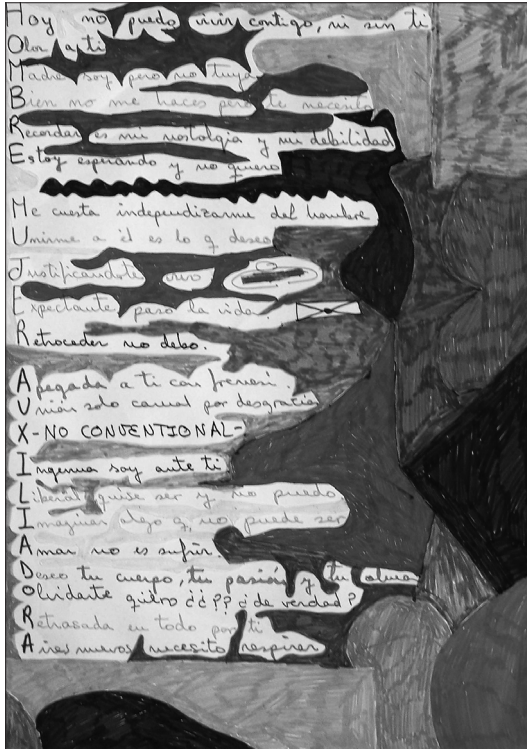 Hoy no puedo vivir contigo, ni sin ti
Olor a ti
Madre soy pero no tuya
Bien no me haces pero te necesito
Recordar es mi nostalgia y mi debilidad
Estoy esperando y no quiero
Me cuesta independizarme del hombre
Unirme a él es lo q deseo
Justificandote vivo
Expectante paso la vida.
Retroceder no debo.
Apegada a ti con frenesí.
Unión solo carnal por desgracia
X-NO CONVENTIONAL-
Ingenua soy ante ti
Liberal quise ser y no puedo
Imaginar algo q no puede ser
Amar no es sufrir.
Deseo tu cuerpo, tu pasión y tu alma
Olvidarte quiero ¿¿?? ¿de verdad?
Retrasada en todo por ti
Aires nuevos necesito respirar